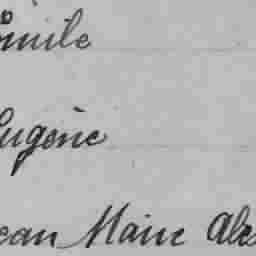 Emile
Eugène
Jean Marie Ale